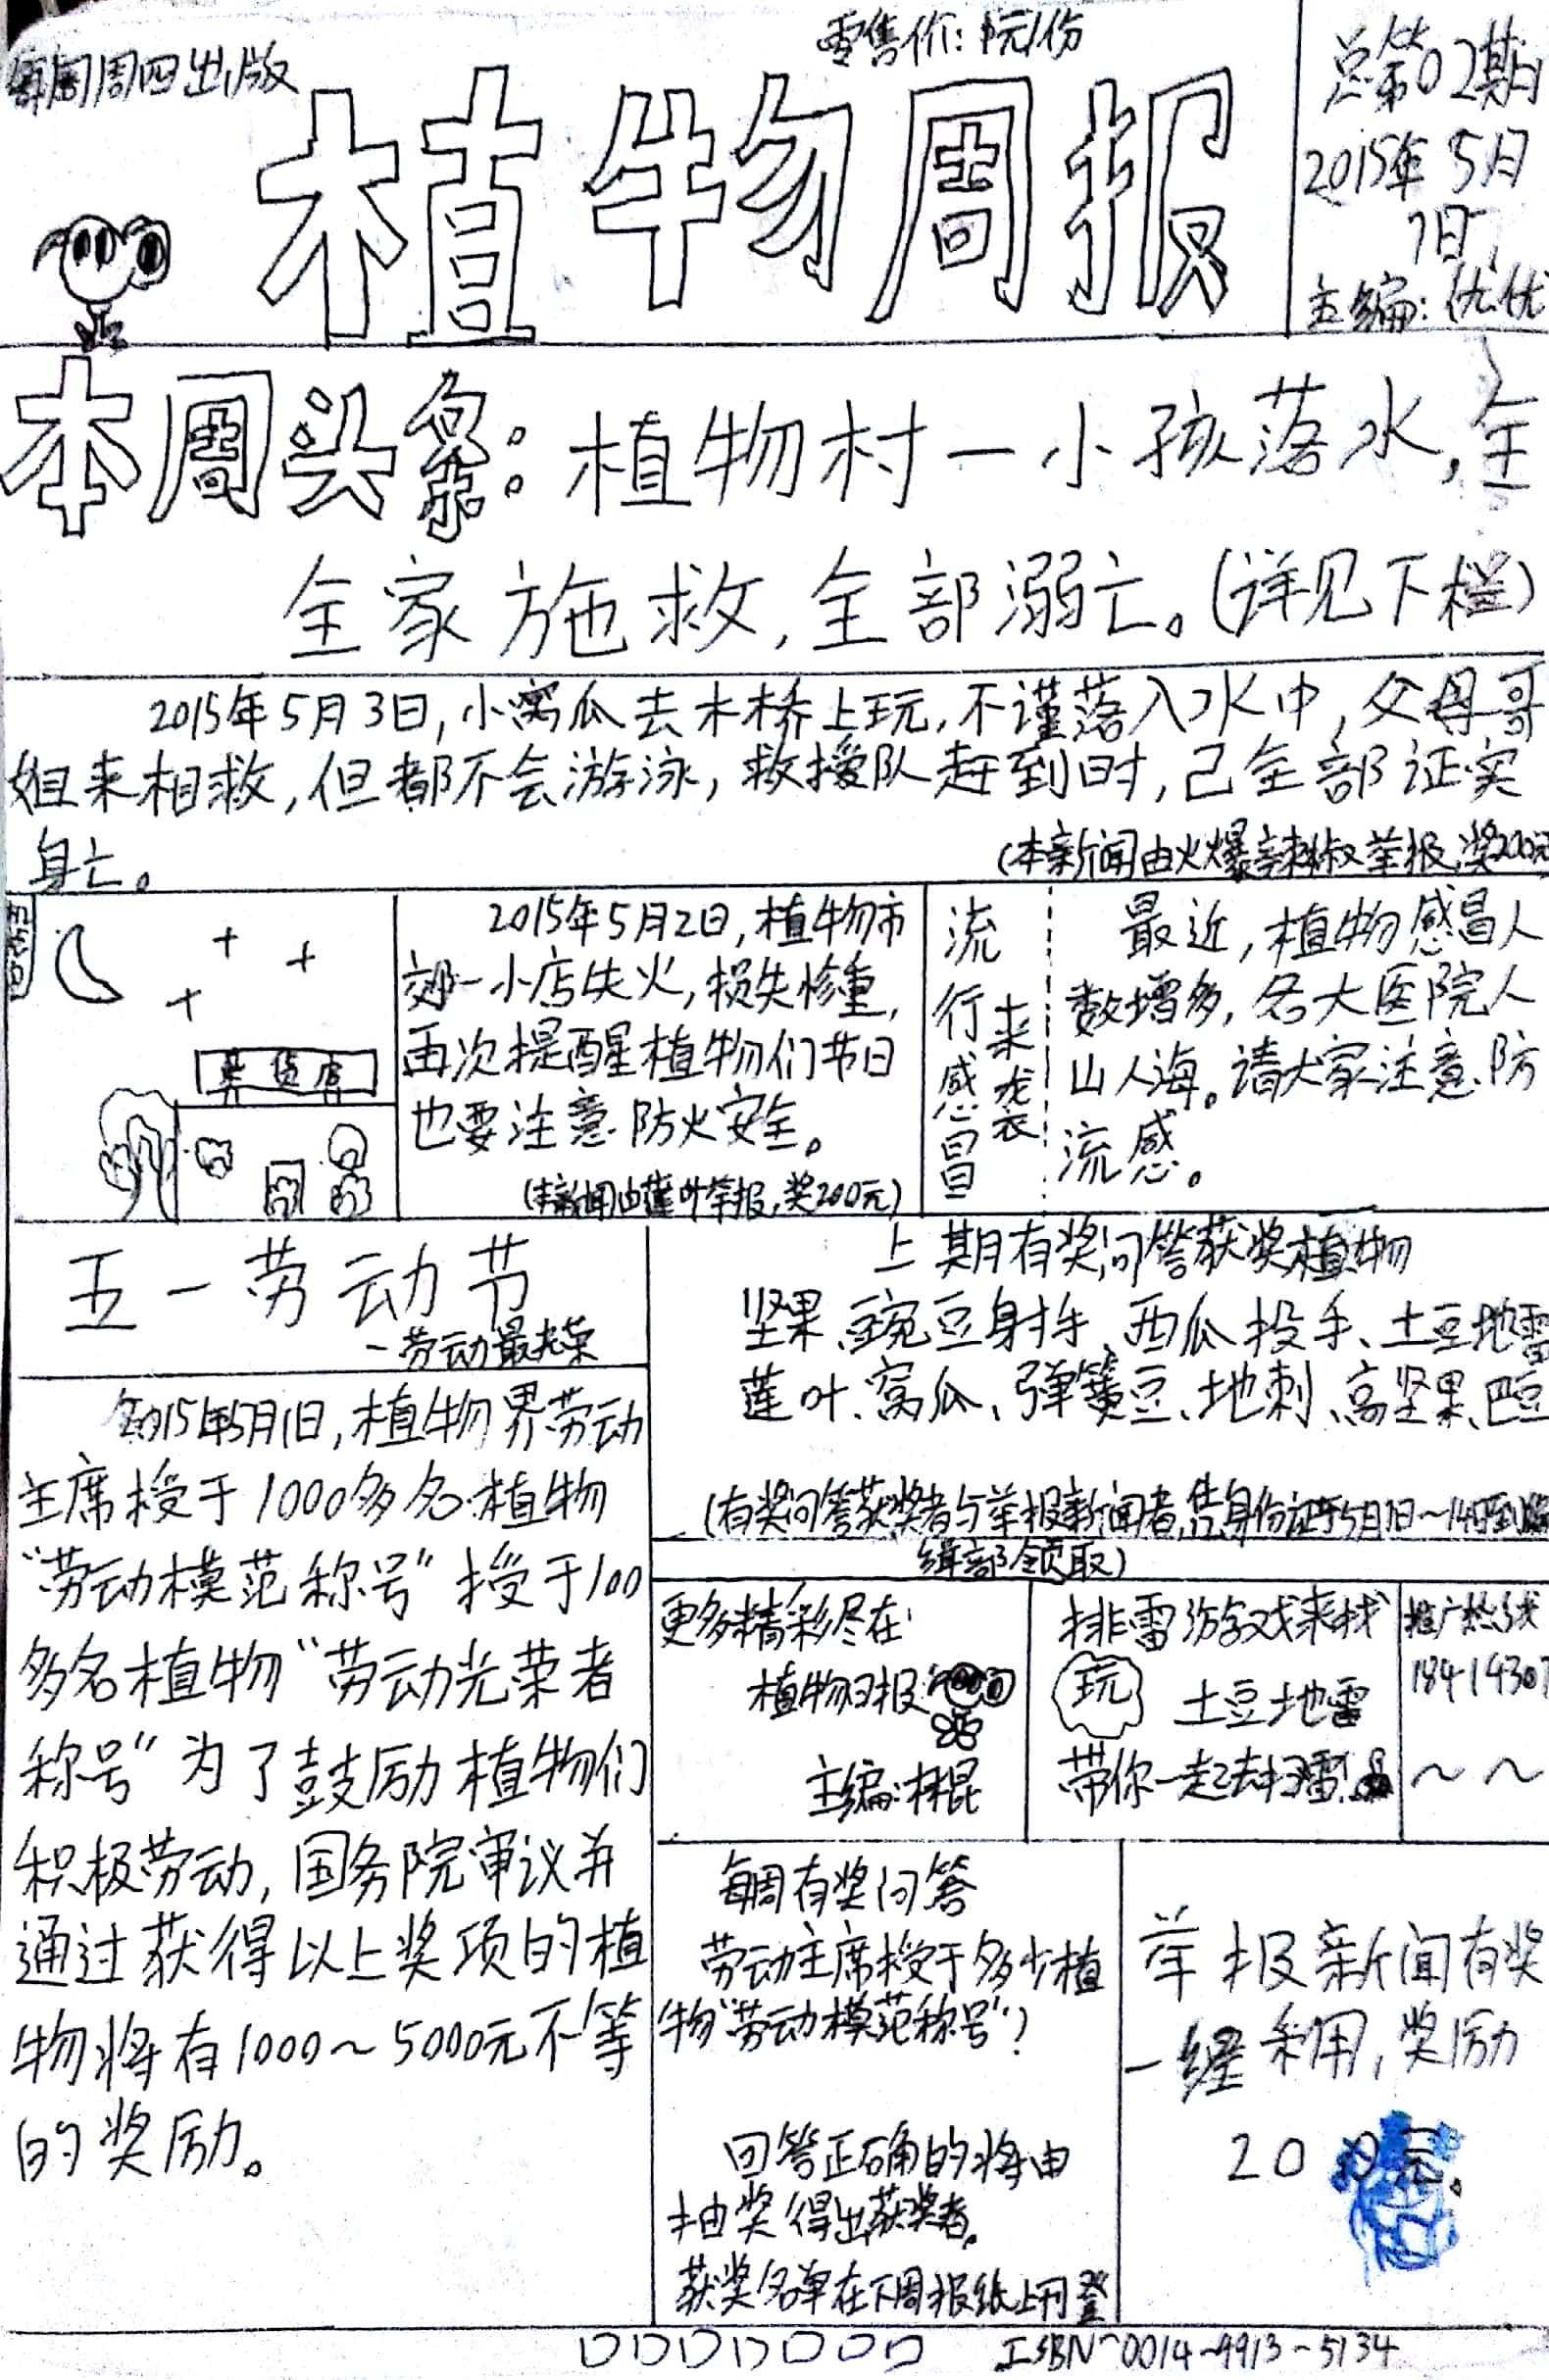 每周周四出版
零售价:1元/份
植物周报
总第02期
2015年5月
7日
主编:优优
本周头条:植物村一小孩落水,全
全家施救,全部溺亡。(详见下栏)
2015年5月3日,小窝瓜去木桥上玩,不谨落入水中,父母哥
姐来相救,但都不会游泳,救援队赶到时,己全部证实
身亡。
(本新闻由火爆辣椒举报,奖200元
杂货店
2015年5月2日,植物市
郊一小店失火,损失惨重,
再次提醒植物们节日
也要注意防火安全。
(本新闻由莲叶举报,奖200元)
流行感冒
来袭
最近,植物感冒人
数增多,各大医院人
山人海。请大家注意防
流感。
五一劳动节
—劳动最光荣
2015年5月1日,植物界劳动
主席授于1000多名植物
“劳动模范称号”授于100
多名植物“劳动光荣者
称号”为了鼓励植物们
积极劳动,国务院审议并
通过获得以上奖项的植
物将有1000~5000元不等
的奖励。
上期有奖问答获奖植物
坚果、豌豆射手、西瓜投手、土豆地雷
莲叶、窝瓜、弹簧豆、地刺、高坚果、巴豆
(有奖问答获奖者与举报新闻者,凭身份证于5月7日~14日到编
缉部领取)
更多精彩尽在
植物日报
主编:棒棍
排雷游戏来找
玩 土豆地雷
带你一起去扫雷!
推广热线
18414307
~~
每周有奖问答
劳动主席授于多少植
物“劳动模范称号”?
回答正确的将由
抽奖得出获奖者。
获奖名单在下周报纸上刊登
举报新闻有奖
一经利用,奖励
200元。
ISBN~0014-9913-5134